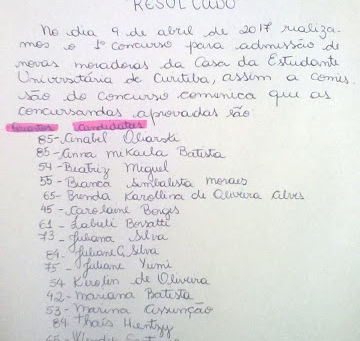 RESULTADO
No dia 9 de abril de 2017 realiza-
mos o 1º concurso para admissão de
novas moradoras da Casa da Estudante
Universitária de Curitiba, assim a comis-
são do concurso comunica que as
concursandas aprovadas são
Candidatas
85- Anabel
85- Anna Mikaela Batista
54- Beatriz Miguel
55- Bianca Simbalista Moraes
65- Brenda Karollina de Oliveira Alves
45- Carolaine Borges
61- Borsatti
73- Juliana Silva
84- Juliane G. Silva
75- Juliane Yumi
54 Kerolin de Oliveira
42- Mariana Batista
53- Marina Assunção
84 Thaís
65-